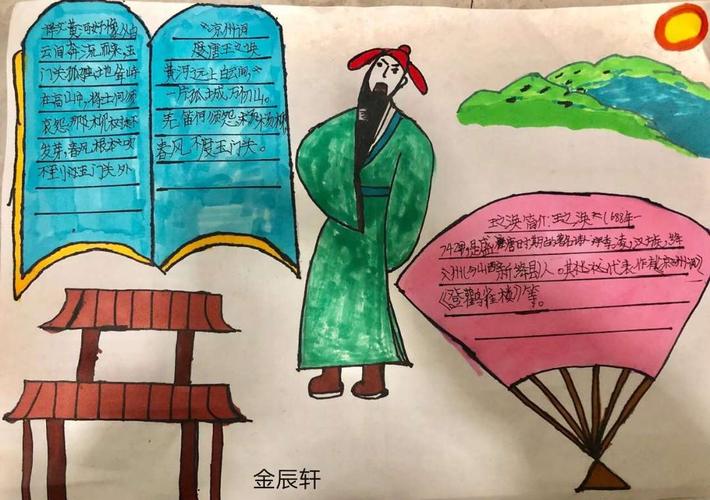 译文黄河好像从白
云间奔流而来,玉
门关孤独地耸峙
在高山中,将士何须
哀怨那杨柳树不
发芽,春风根本吹
不到玉门关外
《凉州词》
唐王之涣
黄河远上白云间,
一片孤城万仞山。
羌笛何须怨杨柳
春风不度玉门关。
王之涣简介:王之涣(688年—
742年)是盛唐时期的著名诗人,字季凌,汉族,绛
州(今山西新绛县)人。其代表作有《凉州词》
《登鹳雀楼》等。
金辰轩